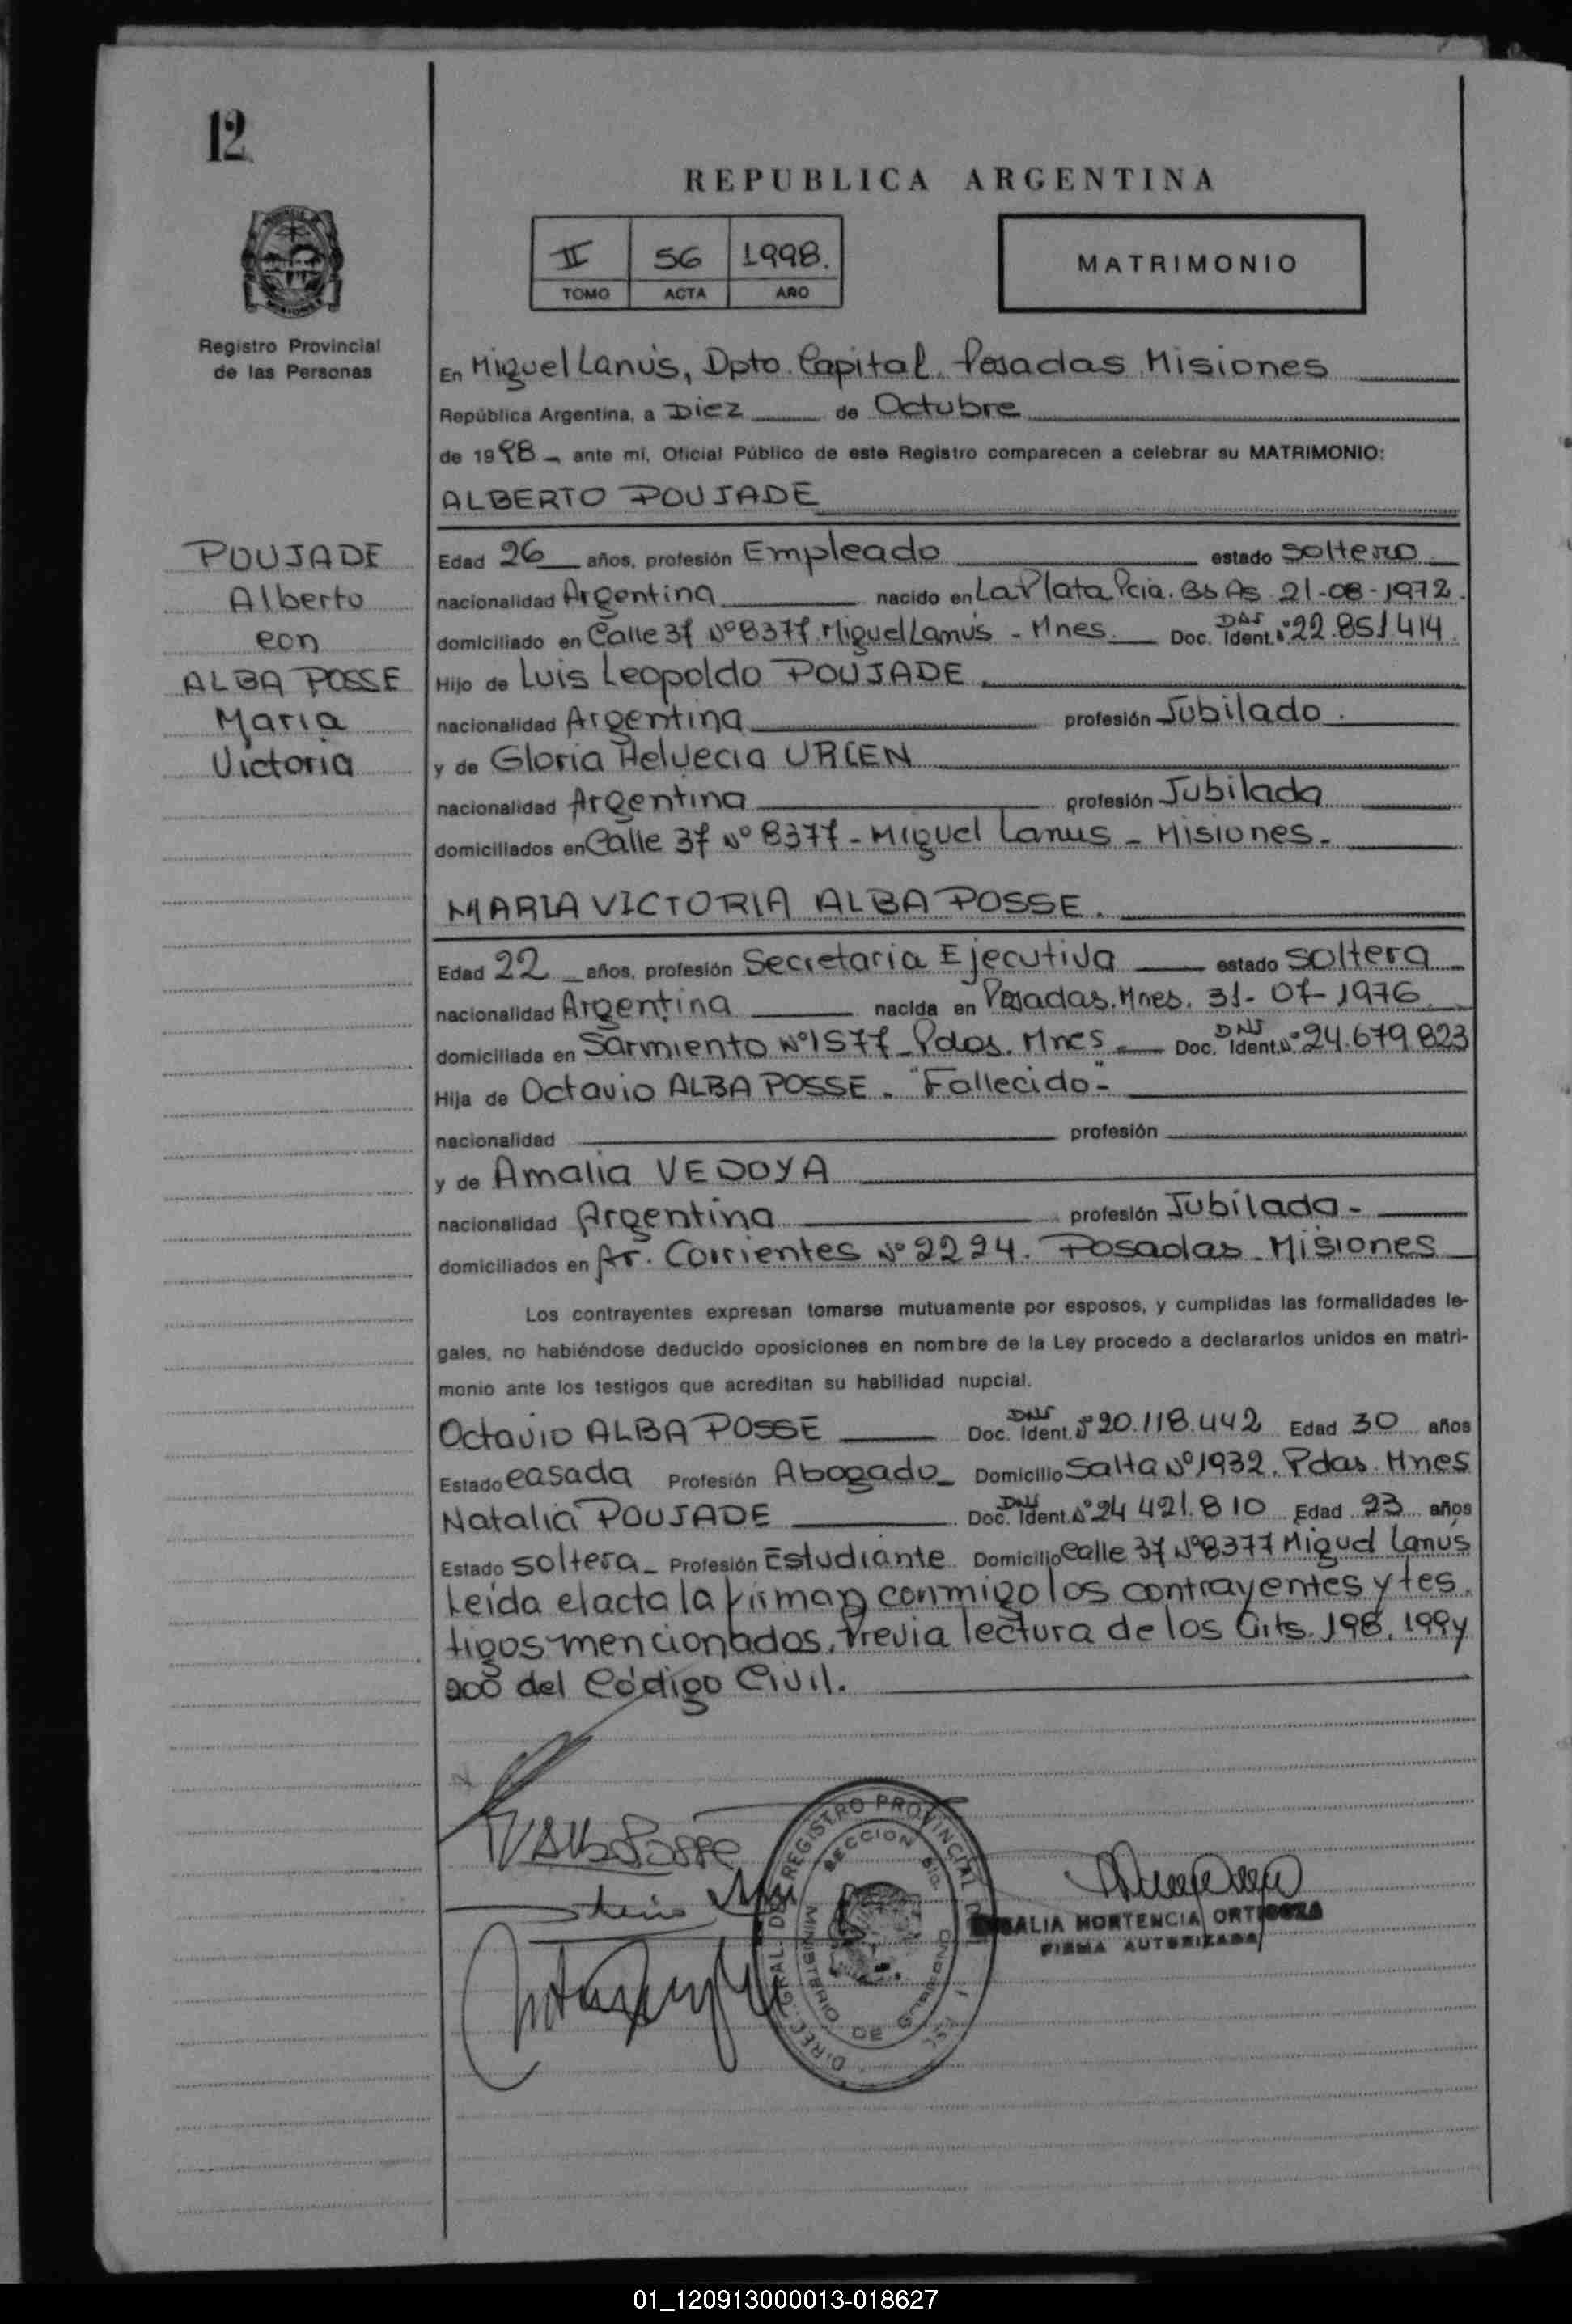 12
REPUBLICA ARGENTINA
II 56 1998.
TOMO ACTA AÑO
MATRIMONIO
Registro Provincial
de las Personas
En Miguel Lanús, Dpto. Capital. Posadas Misiones
República Argentina, a Diez de Octubre
de 1998 - ante mí, Oficial Público de este Registro comparecen a celebrar su MATRIMONIO:
ALBERTO POUJADE
POUJADE
Alberto
con
ALBA POSSE
Maria
Victoria
Edad 26 años, profesión Empleado estado soltero
nacionalidad Argentina nacido en La Plata Pcia. Bs As 21-08-1972.
domiciliado en Calle 37 Nº 8377 Miguel Lanús - Mnes. Doc. Ident. DNI Nº 22.851.414
Hijo de Luis Leopoldo POUJADE.
nacionalidad Argentina profesión Jubilado.
y de Gloria Helvecia
nacionalidad Argentina profesión Jubilada
domiciliados en Calle 37 Nº 8377 - Miguel Lanus - Misiones.
MARIA VICTORIA ALBA POSSE.
Edad 22 años, profesión Secretaria Ejecutiva estado soltera
nacionalidad Argentina nacida en Posadas. Mnes. 31-07-1976
domiciliada en Sarmiento Nº 1577 Pdas. Mnes. Doc. Ident. DNI Nº 24.679.823
Hija de Octavio ALBA POSSE. "Fallecido"-
nacionalidad profesión
y de Amalia VEDOYA
nacionalidad Argentina profesión Jubilada-
domiciliados en Av. Corrientes Nº 2224. Posadas Misiones
Los contrayentes expresan tomarse mutuamente por esposos, y cumplidas las formalidades le-
gales, no habiéndose deducido oposiciones en nombre de la Ley procedo a declararlos unidos en matri-
monio ante los testigos que acreditan su habilidad nupcial.
Octavio ALBA POSSE Doc. Ident. DNI Nº 20.118.442 Edad 30 años
Estado casada Profesión Abogado Domicilio Salta Nº 1932. Pdas. Mnes
Natalia POUJADE Doc. Ident. DNI Nº 24 421.810 Edad 23 años
Estado soltera - Profesión Estudiante Domicilio Calle 37 Nº 8377 Miguel Lanús
Leída el acta la firman conmigo los contrayentes y tes
tigos mencionados. Previa lectura de los Arts. 198, 199 y
200 del Código Civil.
V Alba Posse
DIREC. GRAL. DEL REGISTRO PROVINCIAL
SECCION
MINISTERIO DE GOBIERNO
ROSALIA HORTENCIA ORTIGOZA
FIRMA AUTORIZADA
01_120913000013-018627